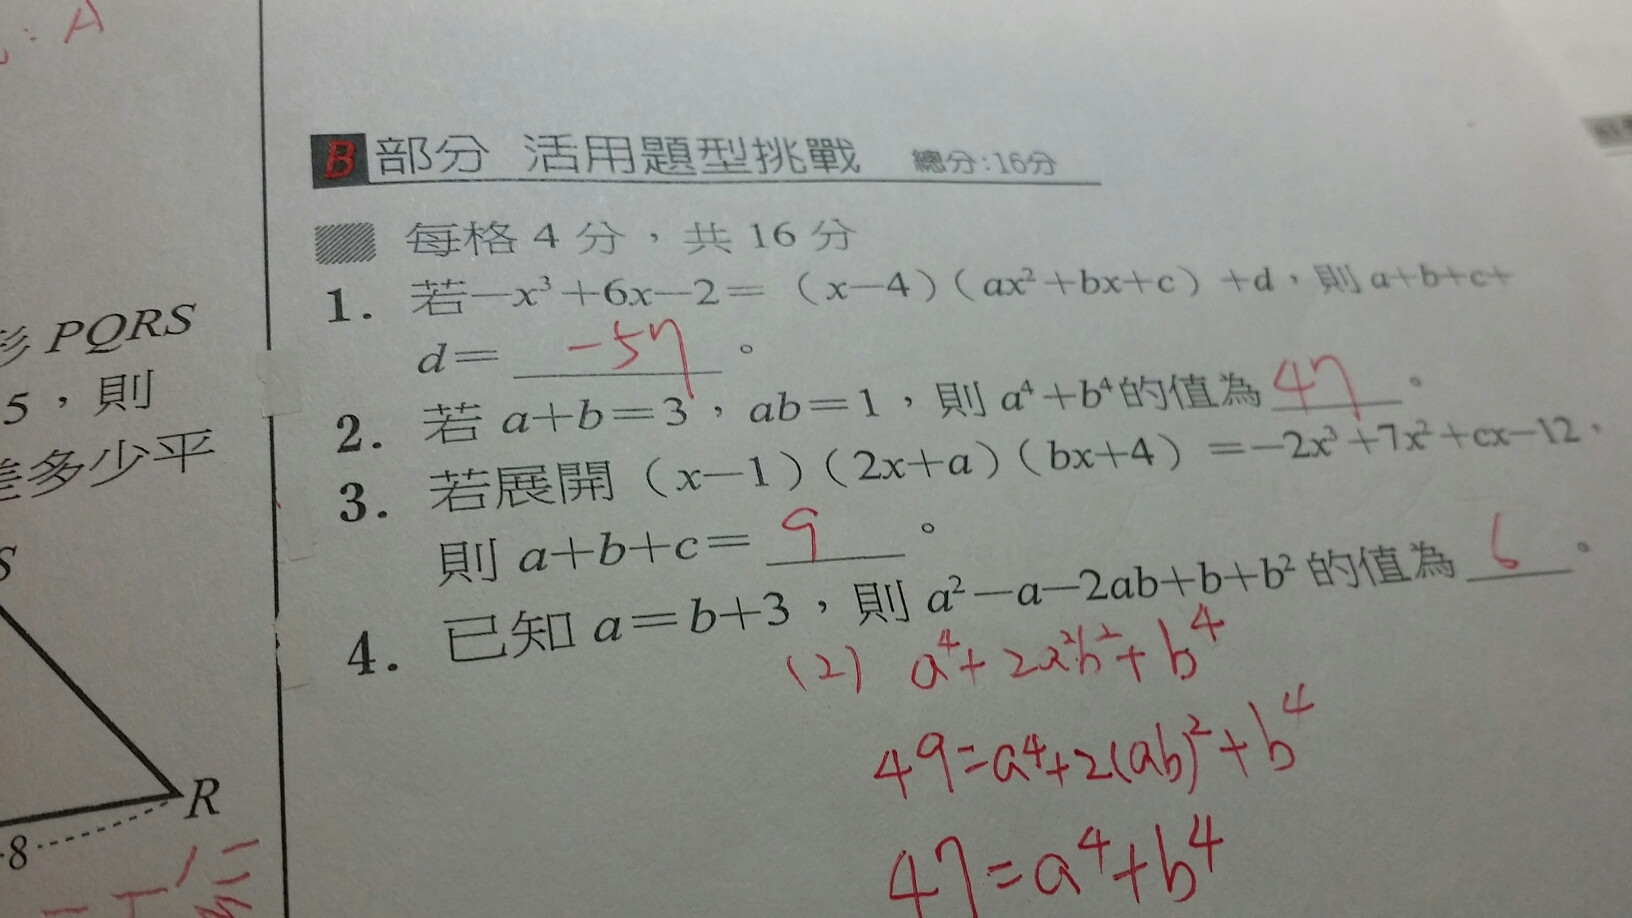 : A
B 部分 活用題型挑戰 總分:16分
每格 4 分，共 16 分
1. 若－x³＋6x－2＝（x－4）（ax²＋bx＋c）＋d，則 a＋b＋c＋
d＝ -57 。
2. 若 a＋b＝3，ab＝1，則 a⁴＋b⁴的值為 47 。
3. 若展開（x－1）（2x＋a）（bx＋4）＝－2x³＋7x²＋cx－12，
則 a＋b＋c＝ 9 。
4. 已知 a＝b＋3，則 a²－a－2ab＋b＋b² 的值為 6 。
(2) a⁴+2a²b²+b⁴
49=a⁴+2(ab)²+b⁴
47=a⁴+b⁴
PQRS
5，則
差多少平
S
R
8